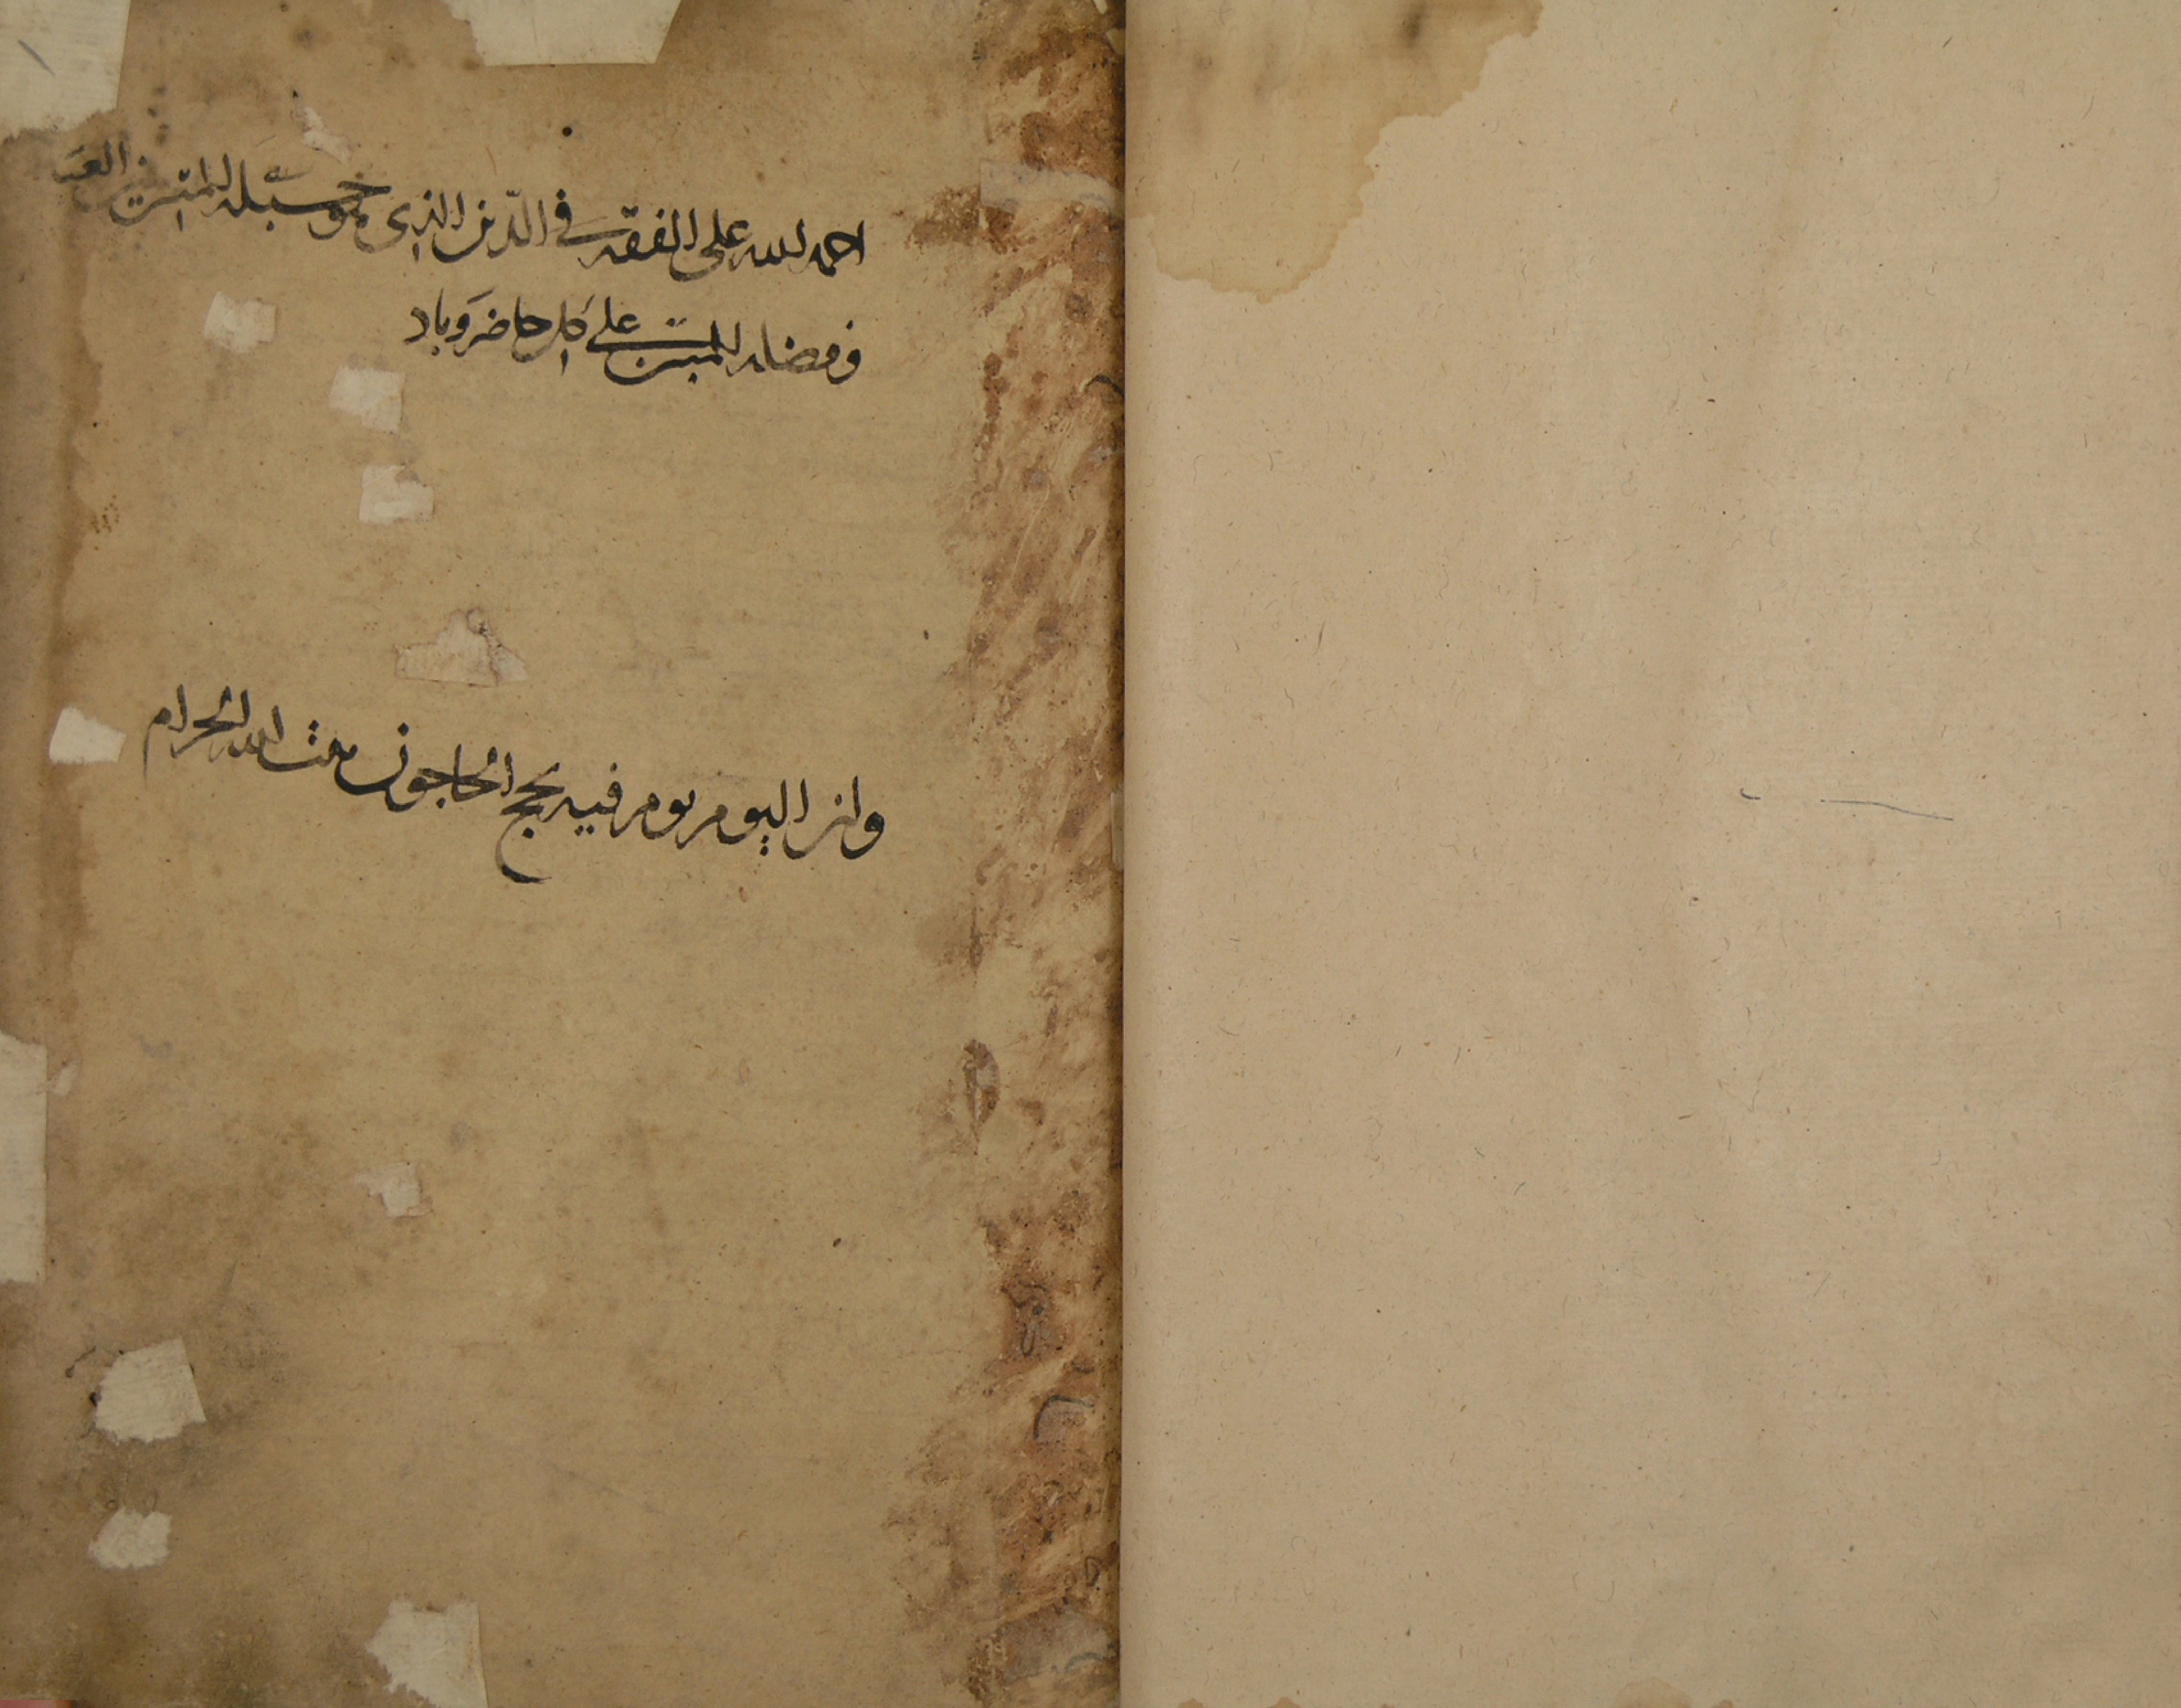 احمد لله على الفقه في الدين الذي هو حبله المتين
وفضله المبين على كل حاضر وباد
وان اليوم يوم فيه يحج الحاجون بيت الله الحرام